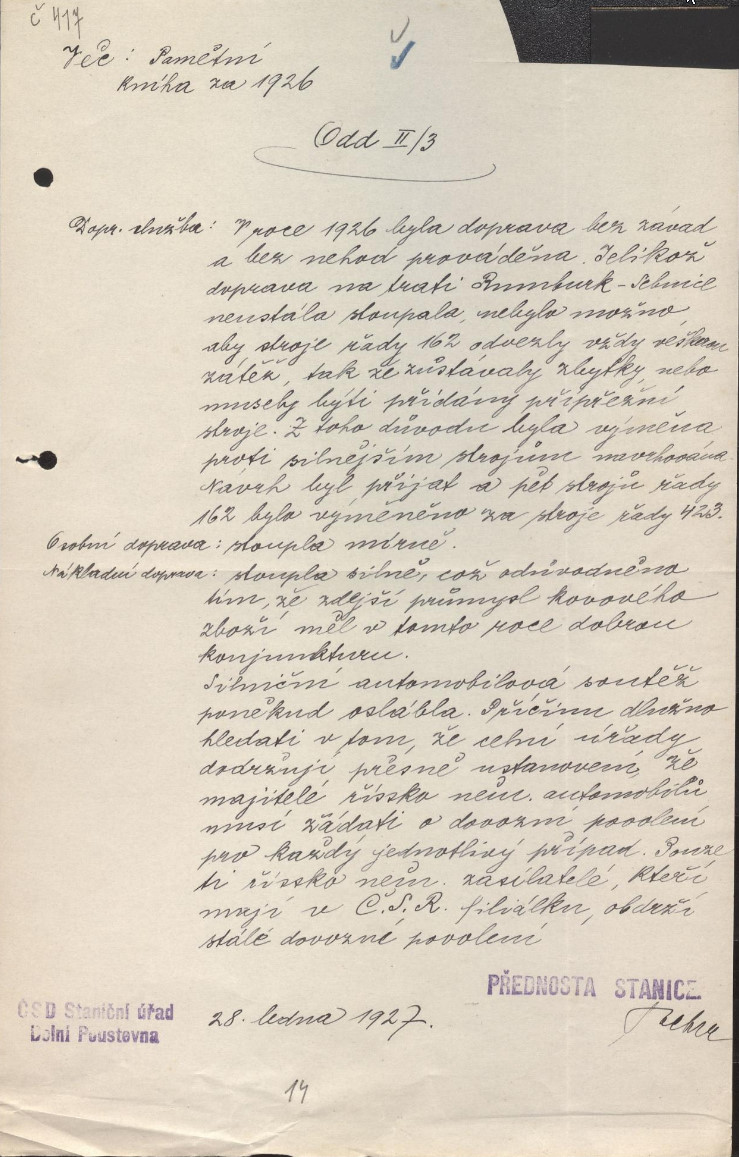 č 417
Věc: Pamětní
kniha za 1926
Odd II/3
Dopr. služba: V roce 1926 byla doprava bez závad
a bez nehod prováděna. Jelikož
doprava na trati Rumburk-Sebnic
neustála stoupala, nebylo možno,
aby stroje řady 162 odvezly vždy veškerou
zátěž, tak že zůstávaly zbytky, nebo
musely býti přidány přípřežní
stroje. Z toho důvodu byla výměna
proti silnějším strojům navrhována.
Návrh byl přijat a pět strojů řady
162 bylo vyměněno za stroje řady 423.
Osobní doprava: stoupla mírně.
Nákladní doprava: stoupla silně, což odůvodněno
tím, že zdejší průmysl kovového
zboží měl v tomto roce dobrou
konjunkturu.
Silniční automobilová soutěž
poněkud oslábla. Příčinu dlužno
hledati v tom, že celní úřady
dodržují přesné ustanovení, že
majitelé říšsko něm. automobilů
musí žádati o dovozní povolení
pro každý jednotlivý případ. Pouze
ti říšsko něm. zasílatelé, kteří
mají v Č.S.R. filiálku, obdrží
stálé dovozné povolení
PŘEDNOSTA STANICE.
ČSD Staniční úřad
Dolní Poustevna
28. ledna 1927.
14